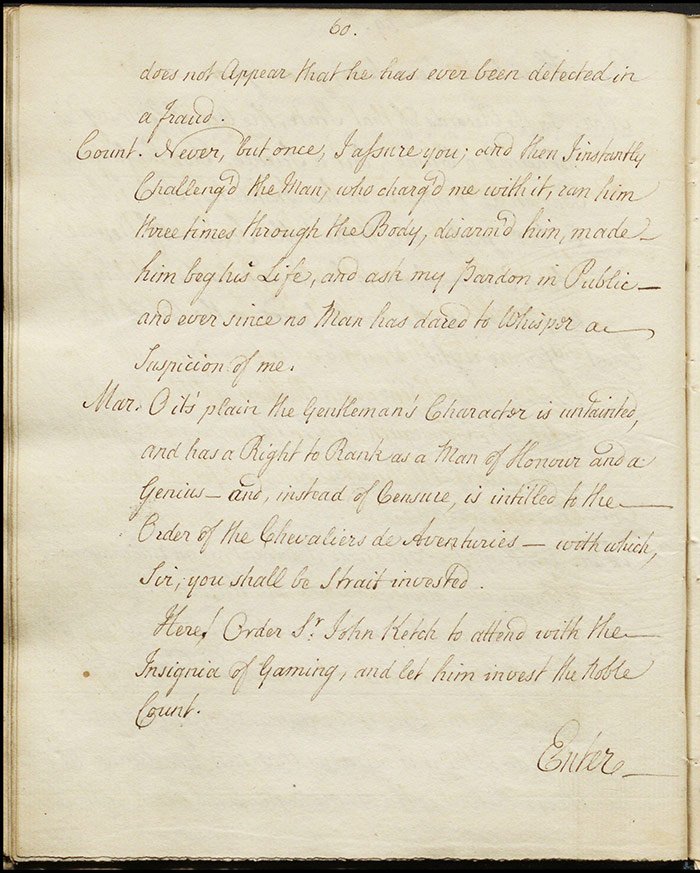 60.
does not Appear that he has ever been detected in
a fraud.
Count. Never, but once, I assure you; and then I instantly
Challeng'd the Man, who charg'd me with it, run him
three times through the Body, disarm'd him, made
him beg his Life, and ask my Pardon in Public—
and ever since no Man has dared to Whisper a
Suspicion of me.
Mar. O it's plain the Gentleman's Character is untainted,
and has a Right to Rank as a Man of Honour and a
Genius— and, instead of Censure, is intitled to the
Order of the Chevaliers de Aventuries— with which,
Sir, you shall be Strait invested.
Here! Order Sr. John Ketch to attend with the
Insignia of Gaming, and let him invest the Noble
Count.
Enter